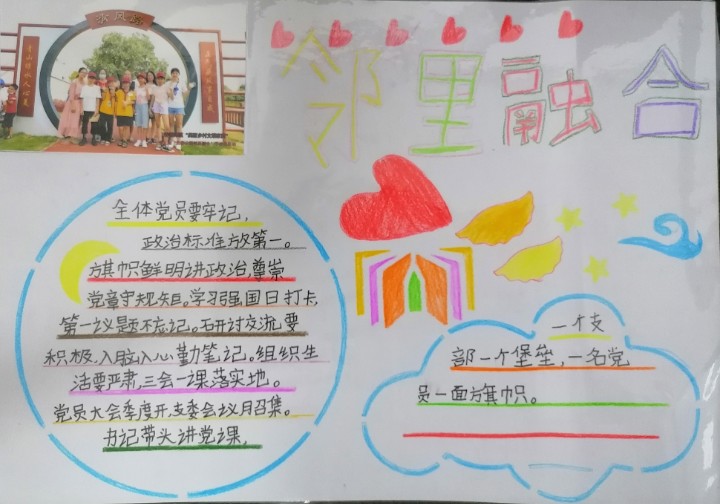 水风
邻里融合
全体党员要牢记，
政治标准放第一。
旗帜鲜明讲政治，尊崇
党章守规矩。学习强国日打卡，
第一议题不忘记。研讨交流要
积极，入脑入心勤笔记。组织生
活要严肃，三会一课落实地。
党员大会季度开，支委会议月召集。
书记带头讲党课，
一个支
部一个堡垒，一名党
员一面旗帜。